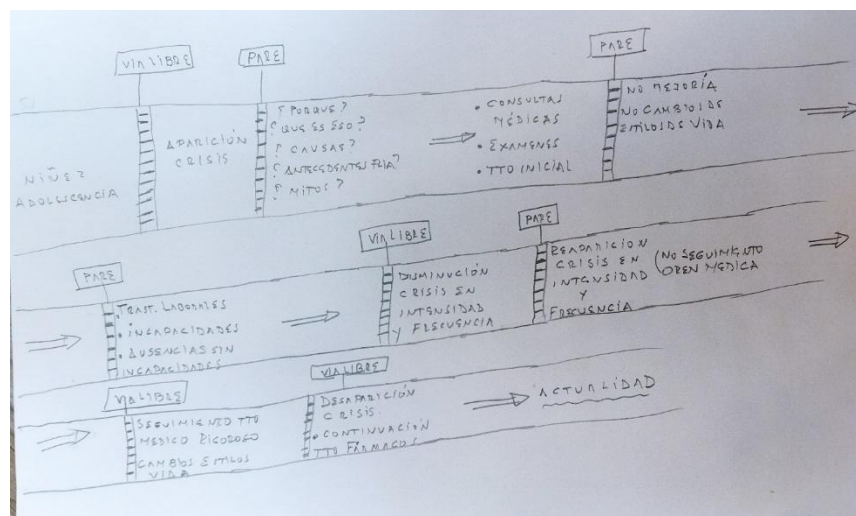 VIA LIBRE
PARE
PARE
NIÑEZ
ADOLESCENCIA
APARICIÓN
CRISIS
¿PORQUE?
¿QUE ES ESO?
¿CAUSAS?
¿ANTECEDENTES FLIA?
¿MITOS?
• CONSULTAS
MÉDICAS
• EXAMENES
• TTO INICIAL
NO MEJORÍA
NO CAMBIOS DE
ESTILOS DE VIDA
PARE
VIA LIBRE
PARE
• TRAST. LABORALES
• INCAPACIDADES
• AUSENCIAS SIN
INCAPACIDADES
DISMINUCIÓN
CRISIS EN
INTENSIDAD
Y FRECUENCIA
REAPARICION
CRISIS EN
INTENSIDAD
Y
FRECUENCIA
(NO SEGUIMIENTO
OREN MEDICA
VIA LIBRE
VIA LIBRE
SEGUIMIENTO TTO
MEDICO RIGOROSO
CAMBIOS ESTILOS
VIDA
DESAPARICIÓN
CRISIS.
• CONTINUACIÓN
TTO FÁRMACOS
ACTUALIDAD